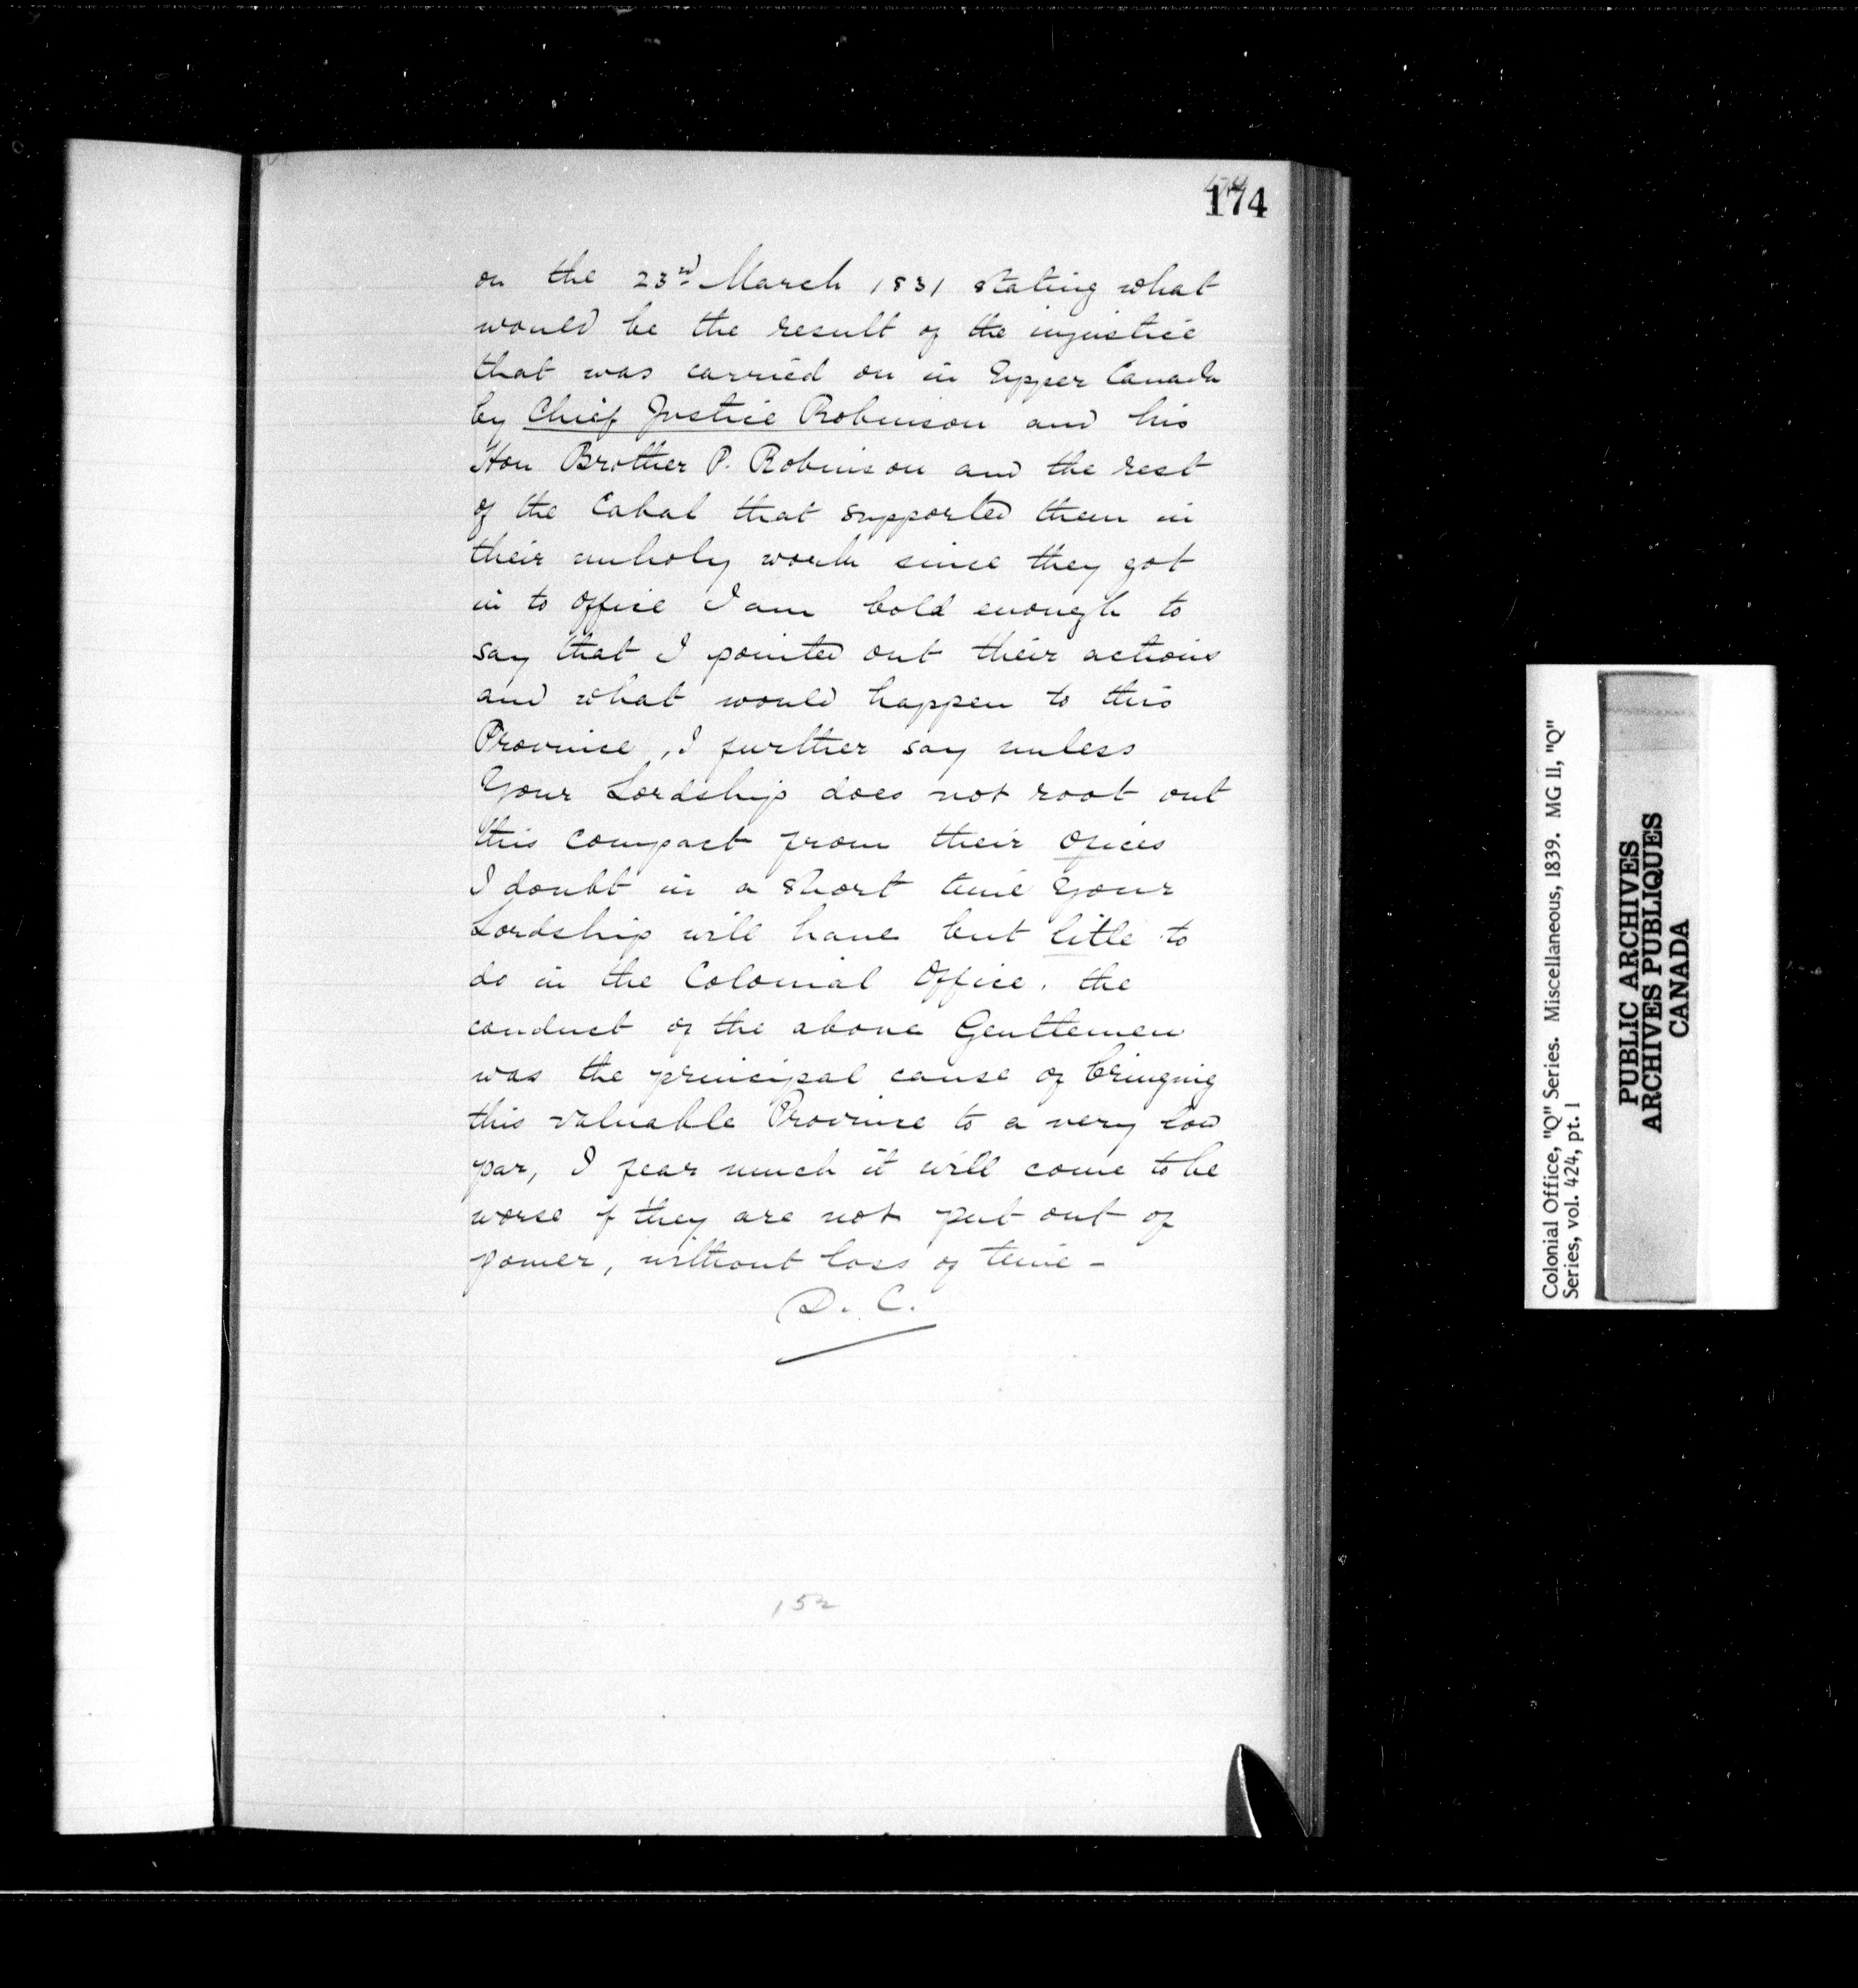 174
on the 23rd March 1831 stating what
would be the result of the injustice
that was carried on in Upper Canada
by Chief Justice Robinson and his
Hon Brother P. Robinson and the rest
of the Cabal that supported them in
their unholy work since they got
in to office I am bold enough to
say that I pointed out their actions
and what would happen to this
Province, I further say unless
Your Lordship does not root out
this compact from their ofices
I doubt in a short time Your
Lordship will have but litle to
do in the Colonial Office. the
conduct of the above Gentlemen
was the principal cause of bringing
this valuable Province to a very low
par, I fear much it will come to be
worse if they are not put out of
power, without loss of time -
D. C.
152
Colonial Office, "Q" Series. Miscellaneous, 1839. MG 11, "Q"
Series, vol. 424, pt. 1
PUBLIC ARCHIVES
ARCHIVES PUBLIQUES
CANADA